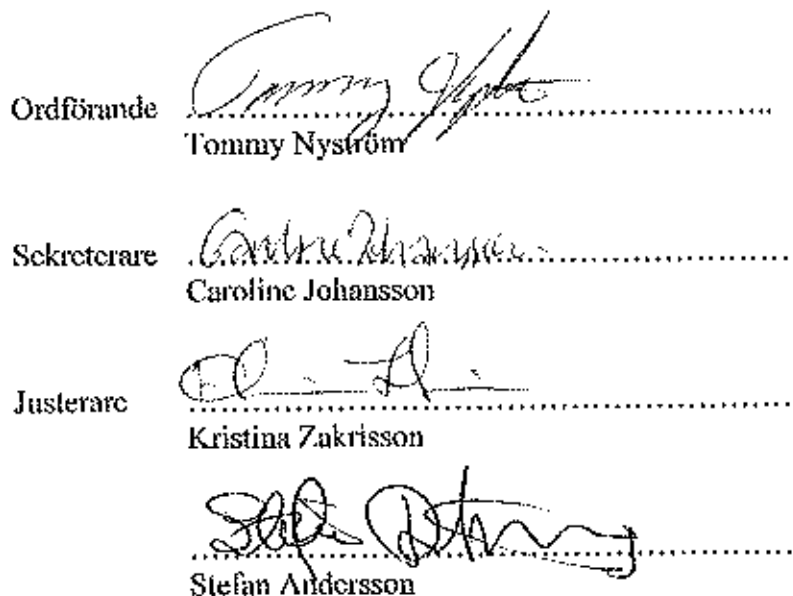 Ordförande
Tommy Nyström
Sekreterare
Caroline Johansson
Justerare
Kristina Zakrisson
Stefan Andersson